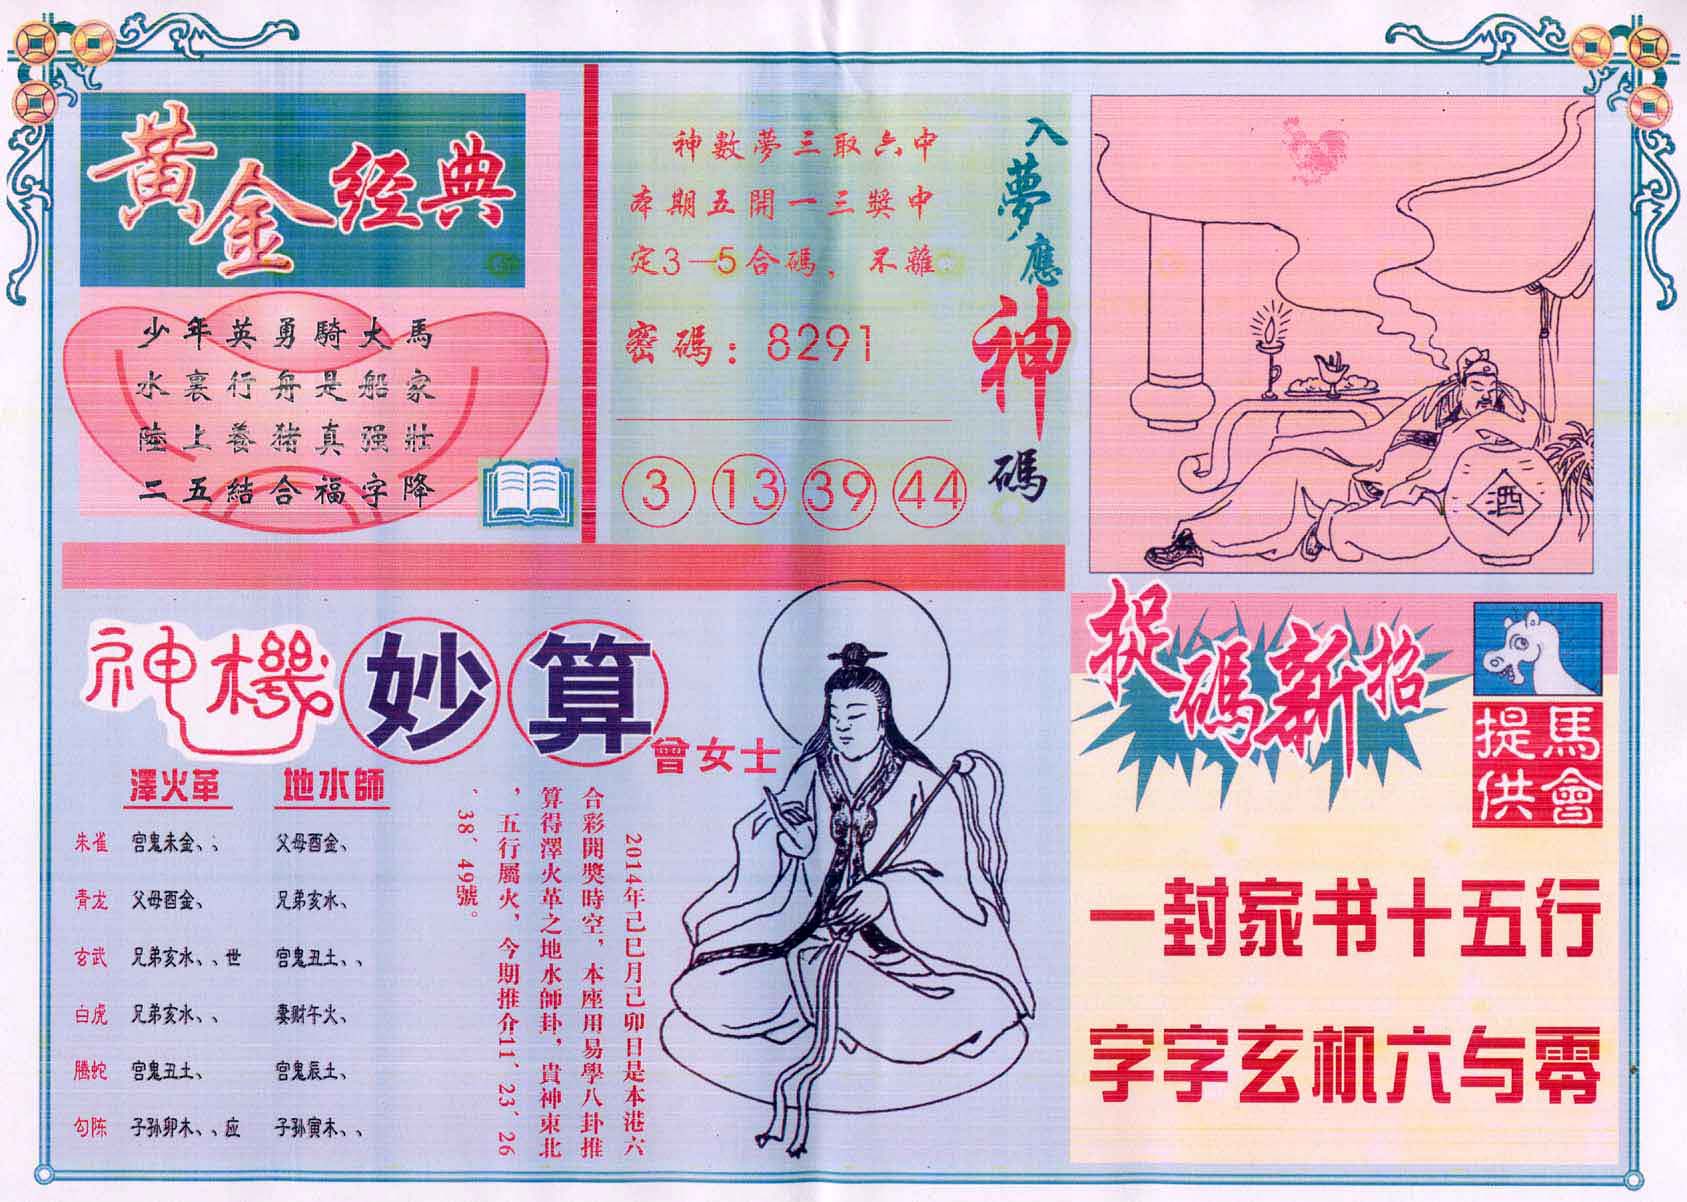 黄金经典
少年英勇騎大馬
水裏行舟是船家
陸上養猪真强壯
二五結合福字降
入夢應神碼
神數夢三取六中
本期五開一三獎中
定3—5合碼，不離
密碼：8291
3 13 39 44
酒
神機妙算
曾女士
澤火革 地水師
朱雀 宫鬼未金、、 父母酉金、
青龙 父母酉金、 兄弟亥水、
玄武 兄弟亥水、、世 宫鬼丑土、、
白虎 兄弟亥水、、 妻财午火、
腾蛇 宫鬼丑土、 宫鬼辰土、
勾陈 子孙卯木、、应 子孙寅木、、
2014年己巳月己卯日是本港六
合彩開獎時空，本座用易學八卦推
算得澤火革之地水師卦，貴神東北
，五行屬火，今期推介11、23、26
、38、49號。
捉碼新招
馬會
提供
一封家书十五行
字字玄机六与零